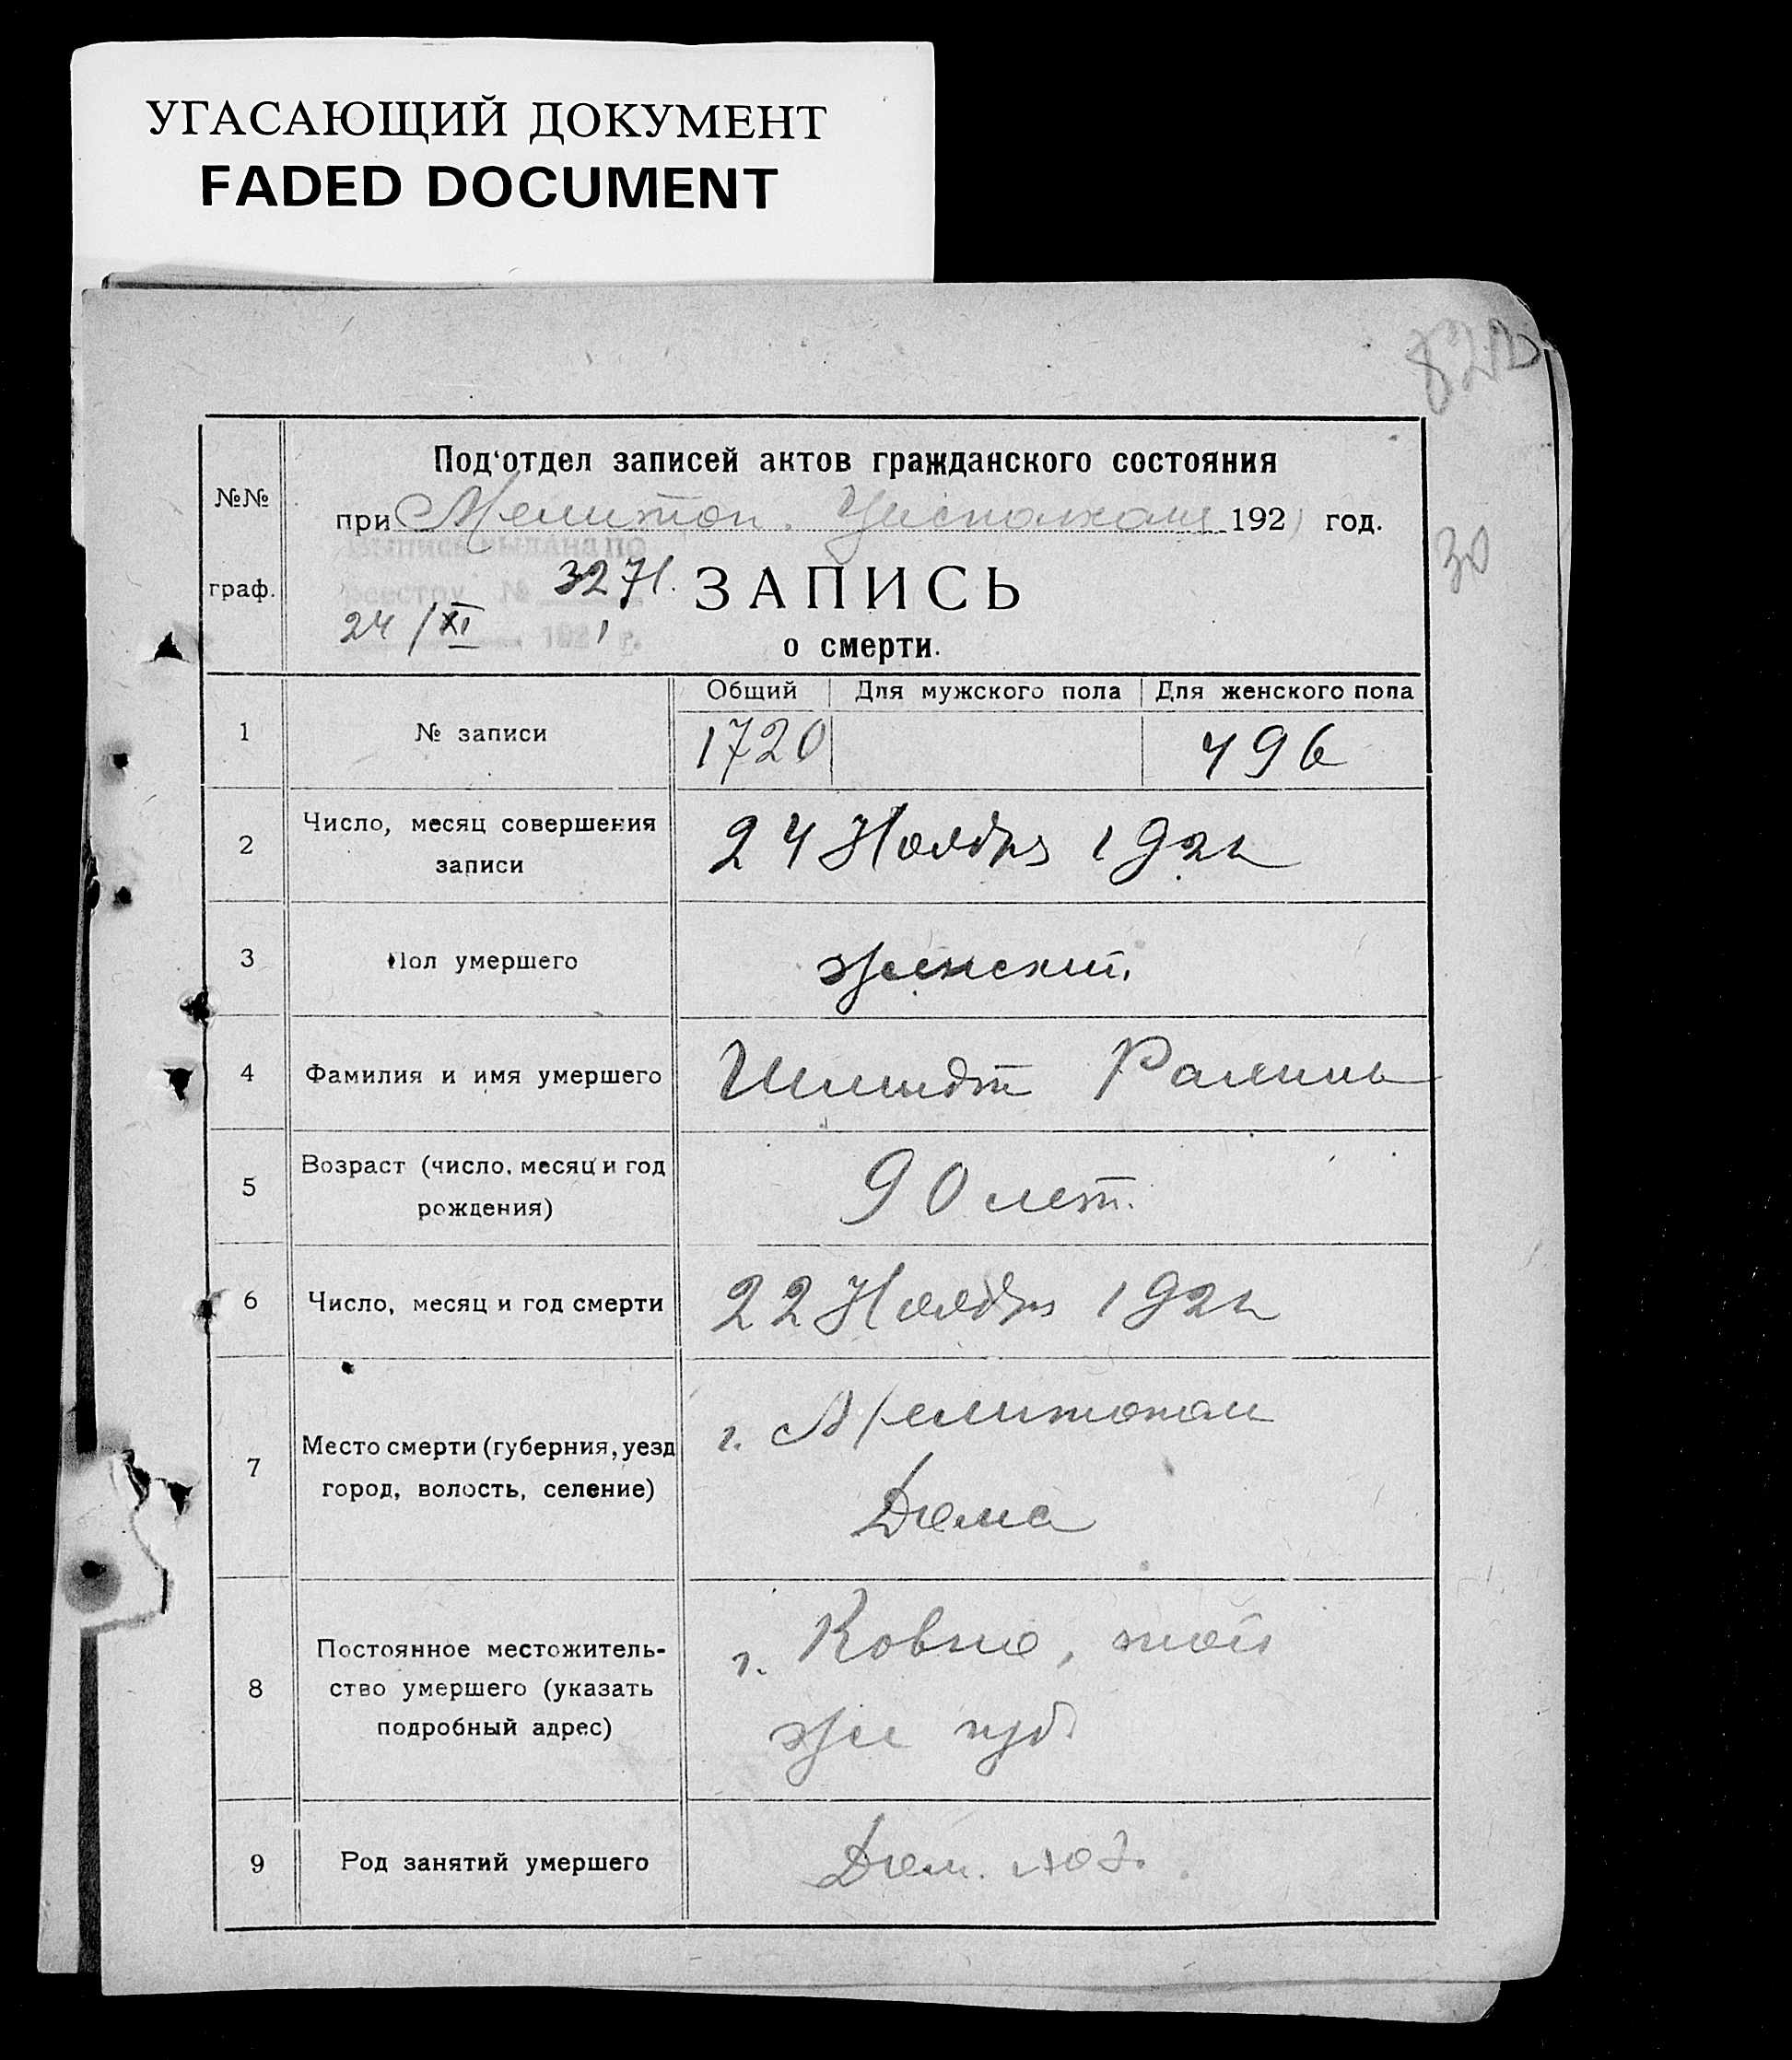 УГАСАЮЩИЙ ДОКУМЕНТ
FADED DOCUMENT
№№
граф.
Под'отдел записей актов гражданского состояния
при Мелитоп. Уисполкоме 192 год.
Выпись выдана по
реестру № 3271.
24/XI 1921 г.
ЗАПИСЬ
о смерти.
30
Общий Для мужского пола Для женского пола
1 № записи 1720 796
2 Число, месяц совершения
записи
24 Ноября 1921
3 Пол умершего женский
4 Фамилия и имя умершего Шмидт
5 Возраст (число, месяц и год
рождения)
90 лет.
6 Число, месяц и год смерти 22 Ноября 1921
7 Место смерти (губерния, уезд
город, волость, селение)
г. Мелитополь
Дома
8 Постоянное местожитель-
ство умершего (указать
подробный адрес)
г. Ковно, той
же губ.
9 Род занятий умершего Дом. хоз.